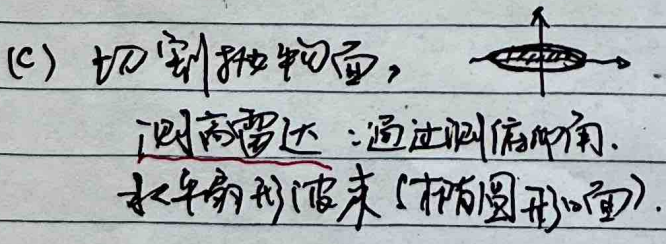 (c) 切割抛物面，
测高雷达：通过测俯仰角.
水平扇形波束（椭圆形口面）.